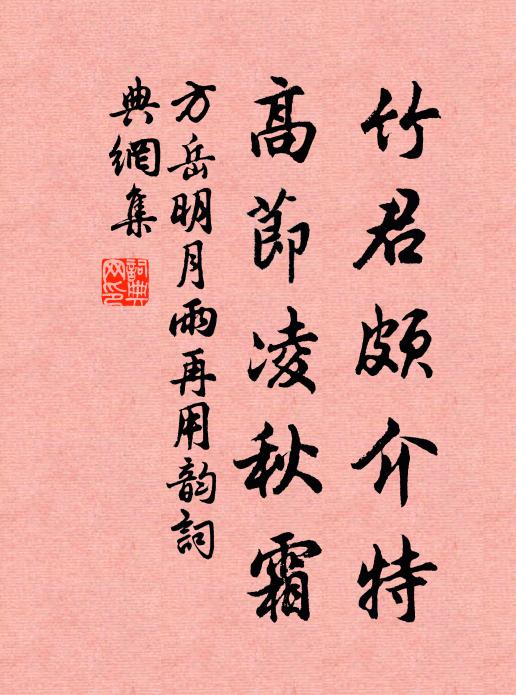 竹君頗介特
高節凌秋霜
方岳明月雨再用韵詞
典網集
詞典网印